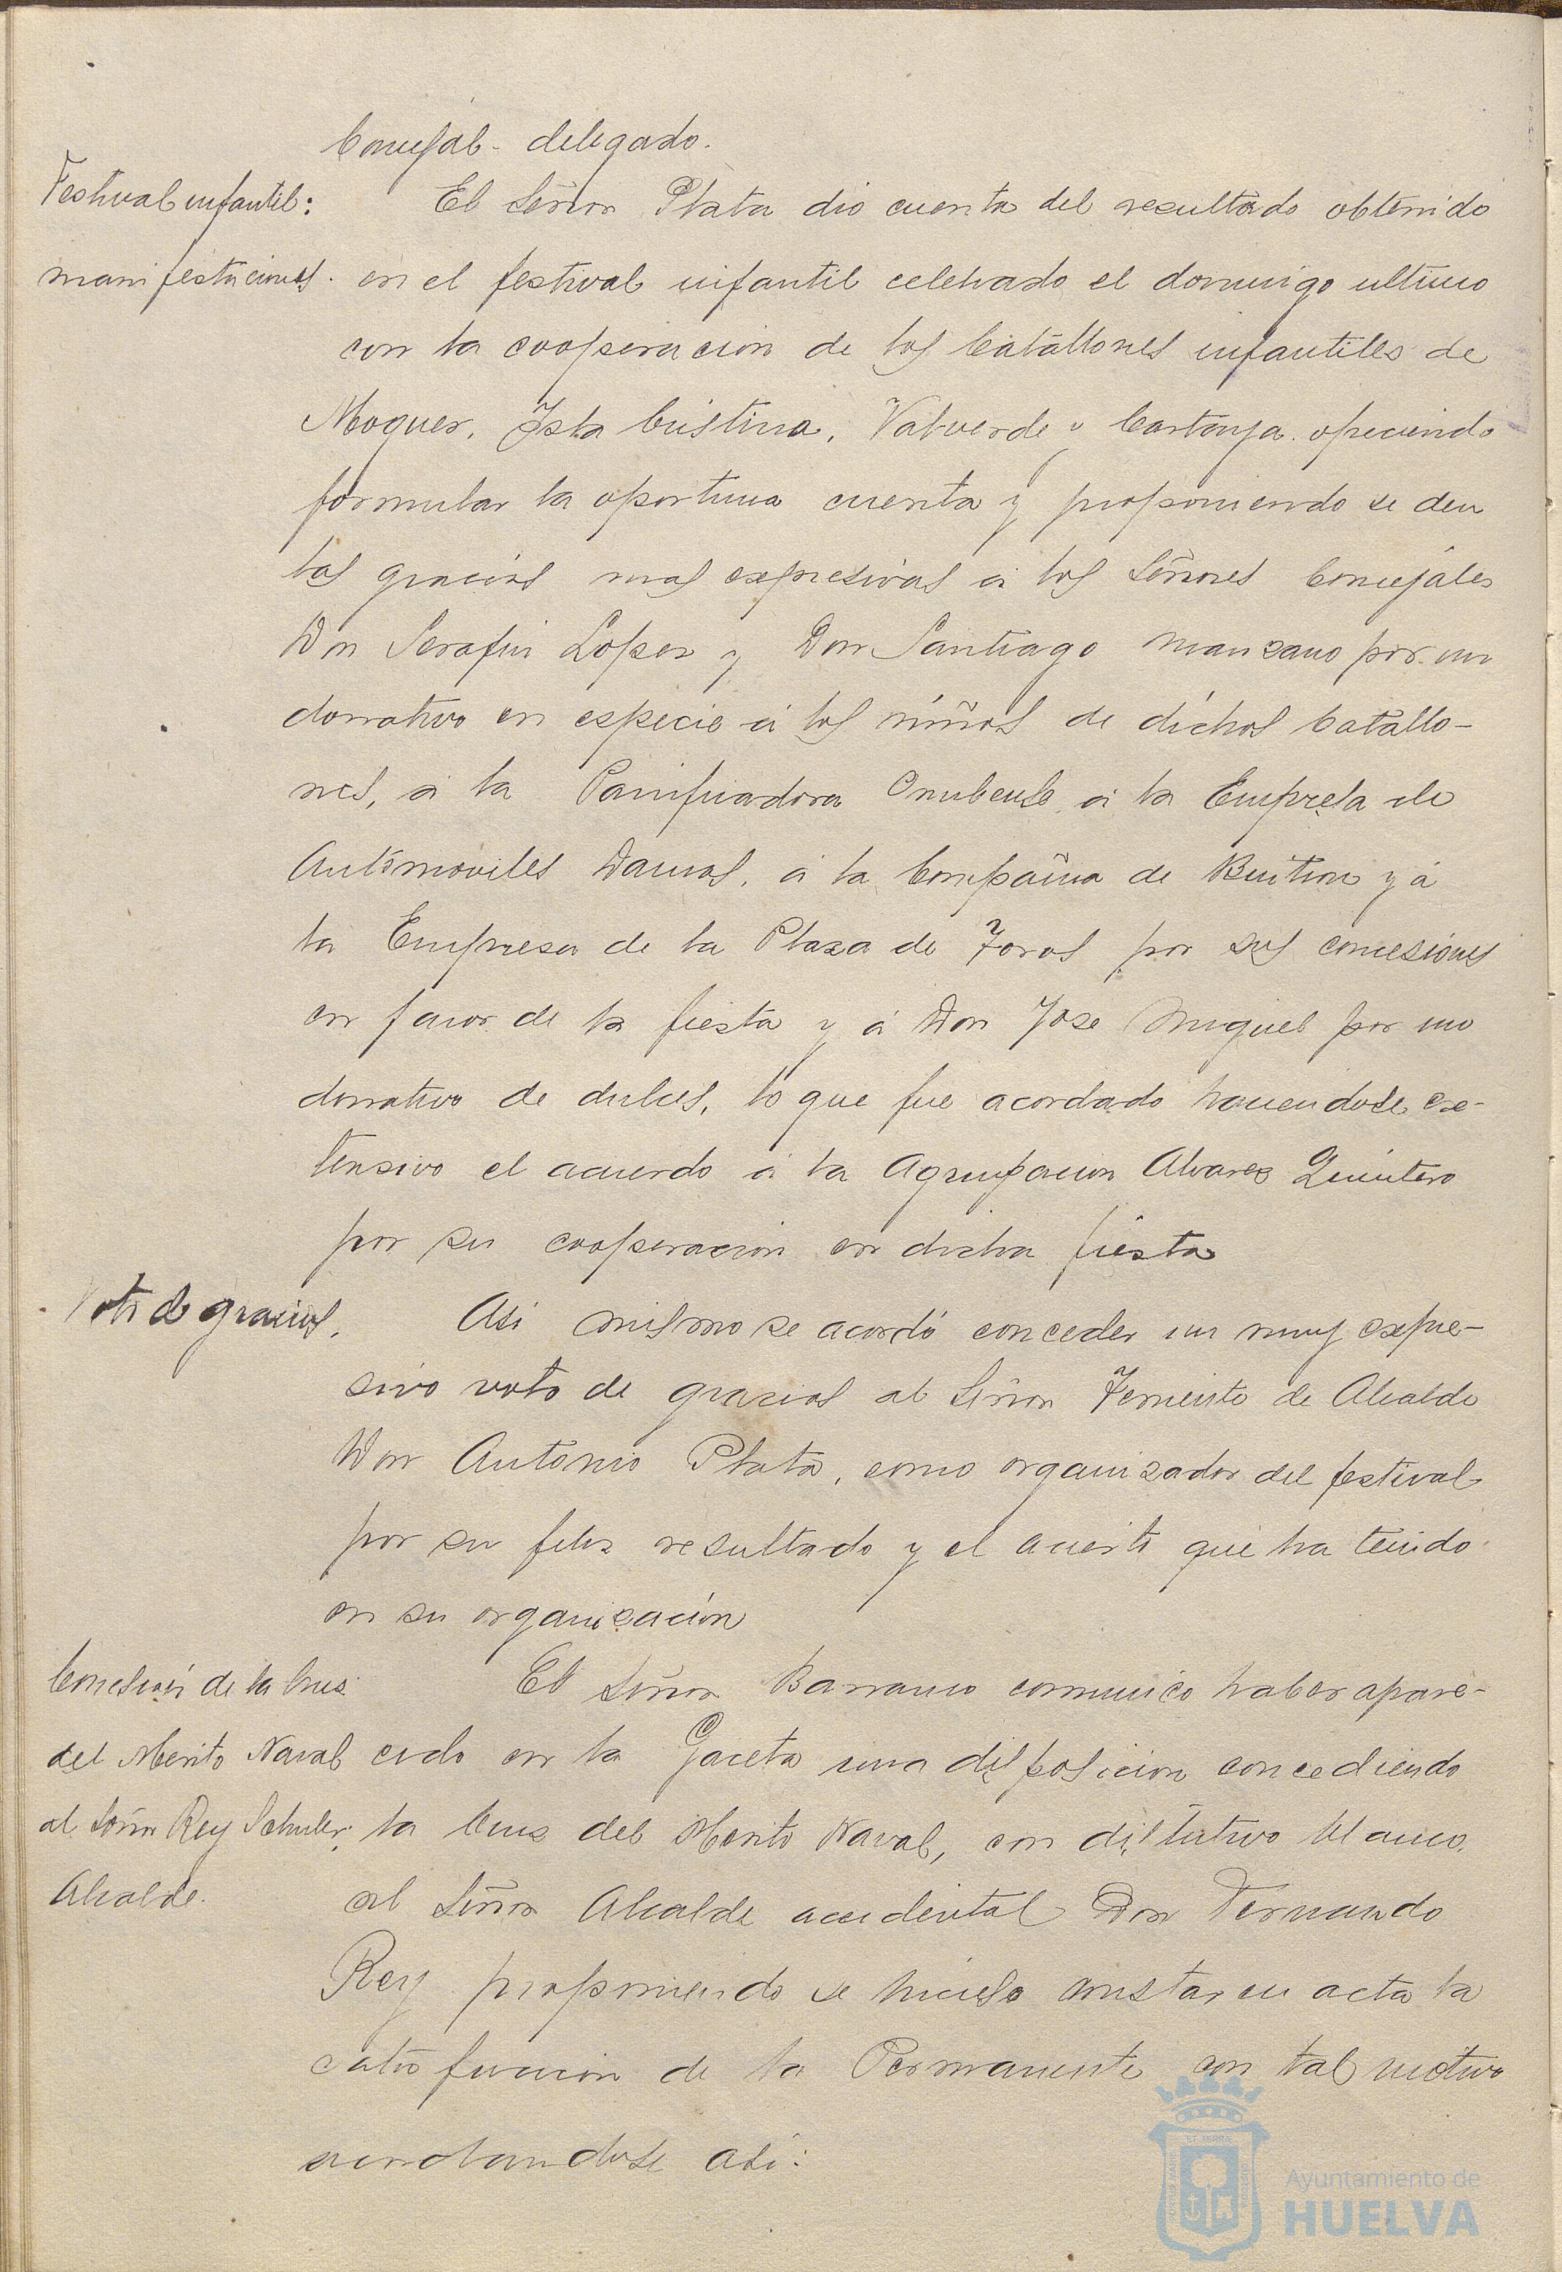 Concejal delegado.
Festival infantil:
manifestaciones.
El Señor Plata dió cuenta del resultado obtenido
en el festival infantil celebrado el domingo ultimo
con la cooperacion de los batallones infantiles de
Moguer, Isla Cristina, Valverde y Cartaya, ofreciendo
formular la oportuna cuenta y proponiendo se den
las gracias mas expresivas á los Señores Concejales
Don Serafin Lopez y Don Santiago Manzano por un
donativo en especie á los niños de dichos batallo-
nes, á la Panificadora Onubense, á la Empresa de
Automoviles Damas, á la Compañia de Buitron y á
la Empresa de la Plaza de Toros por sus concesiones
en favor de la fiesta y á Don Jose Miguel por un
donativo de dulces, lo que fue acordado haciendose ex-
tensivo el acuerdo á la Agrupacion Alvarez Quintero
por su cooperacion en dicha fiesta
Voto de gracias.
Asi mismo se acordó conceder un muy expre-
sivo voto de gracias al Señor Teniente de Alcalde
Don Antonio Plata, como organizador del festival
por su feliz resultado y el acierto que ha tenido
en su organización
Concesión de la Cruz
del Merito Naval
al Señor Rey Schuler,
Alcalde.
El Señor Barranco comunico haber apare-
cido en la Gaceta una disposicion concediendo
la Cruz del Merito Naval, con distintivo blanco,
al Señor Alcalde accidental Don Fernando
Rey proponiendo se hiciese constar en acta la
satisfaccion de la Permanente con tal motivo
acordandose asi:
Ayuntamiento de
HUELVA